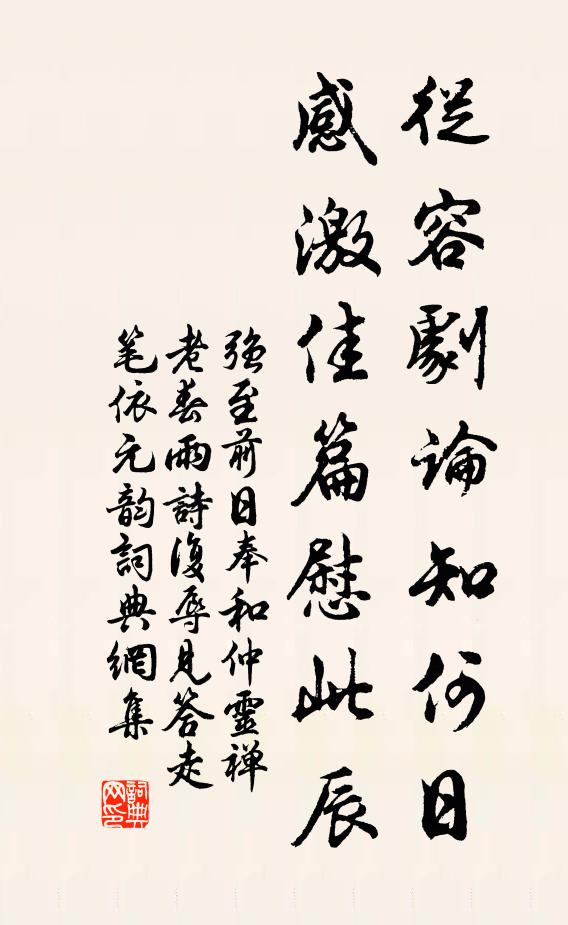 從容劇論知何日
感激佳篇慰此辰
強至前日奉和仲靈禅
老春雨詩復辱見答走
笔依元韵詞典網集
詞典
网印